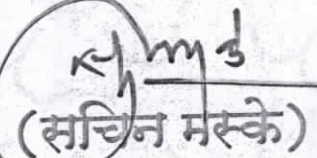 (सचिन मस्के)